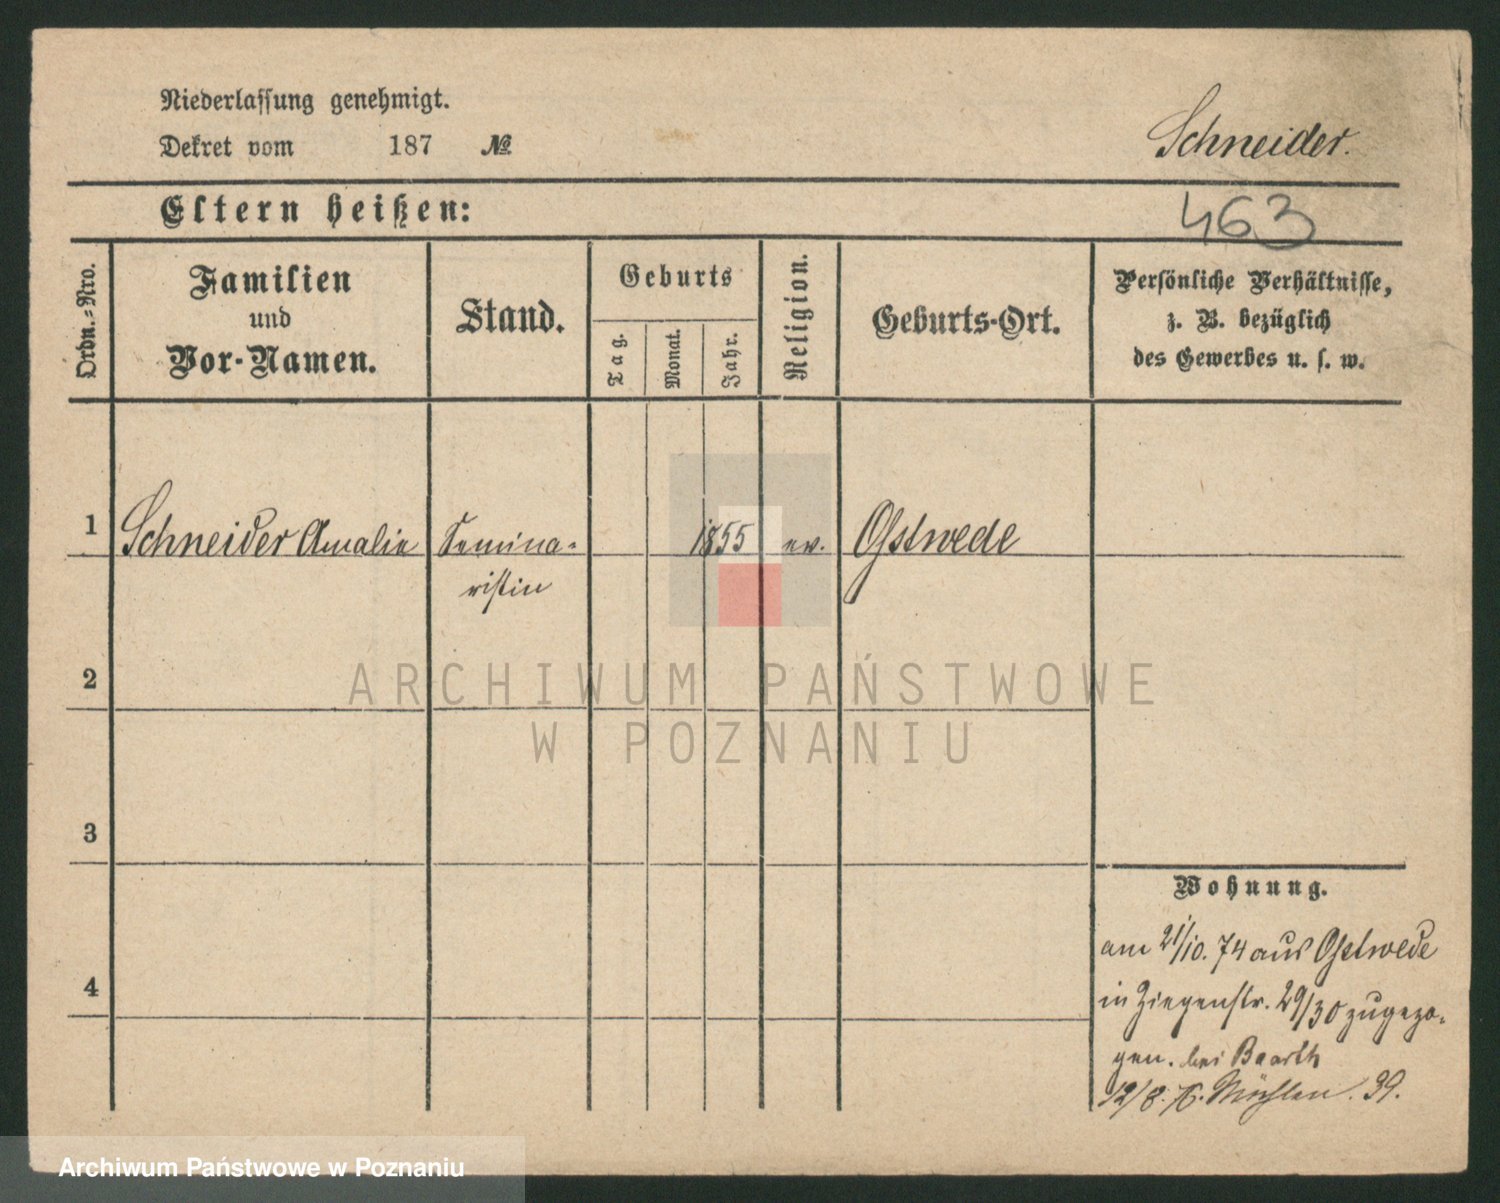 Niederlassung genehmigt.
Dekret vom 187 №
Schneider.
Eltern heißen:
463
Ordn.-Nro.
Familien
und
Vor-Namen.
Stand.
Geburts
Tag.
Monat.
Jahr.
Religion.
Geburts-Ort.
Persönliche Verhältnisse,
z. B. bezüglich
des Gewerbes u. s. w.
1 Schneider Amalie Semina- 1855 ev. Ostwede
ristin
2
3
4
Wohnung.
am 21/10. 74 aus Ostwede
in Ziegenstr. 29/30 zugezo-
gen. bei Baarth
12/8. 76. Mühlen. 39.
ARCHIWUM PAŃSTWOWE
W POZNANIU
Archiwum Państwowe w Poznaniu